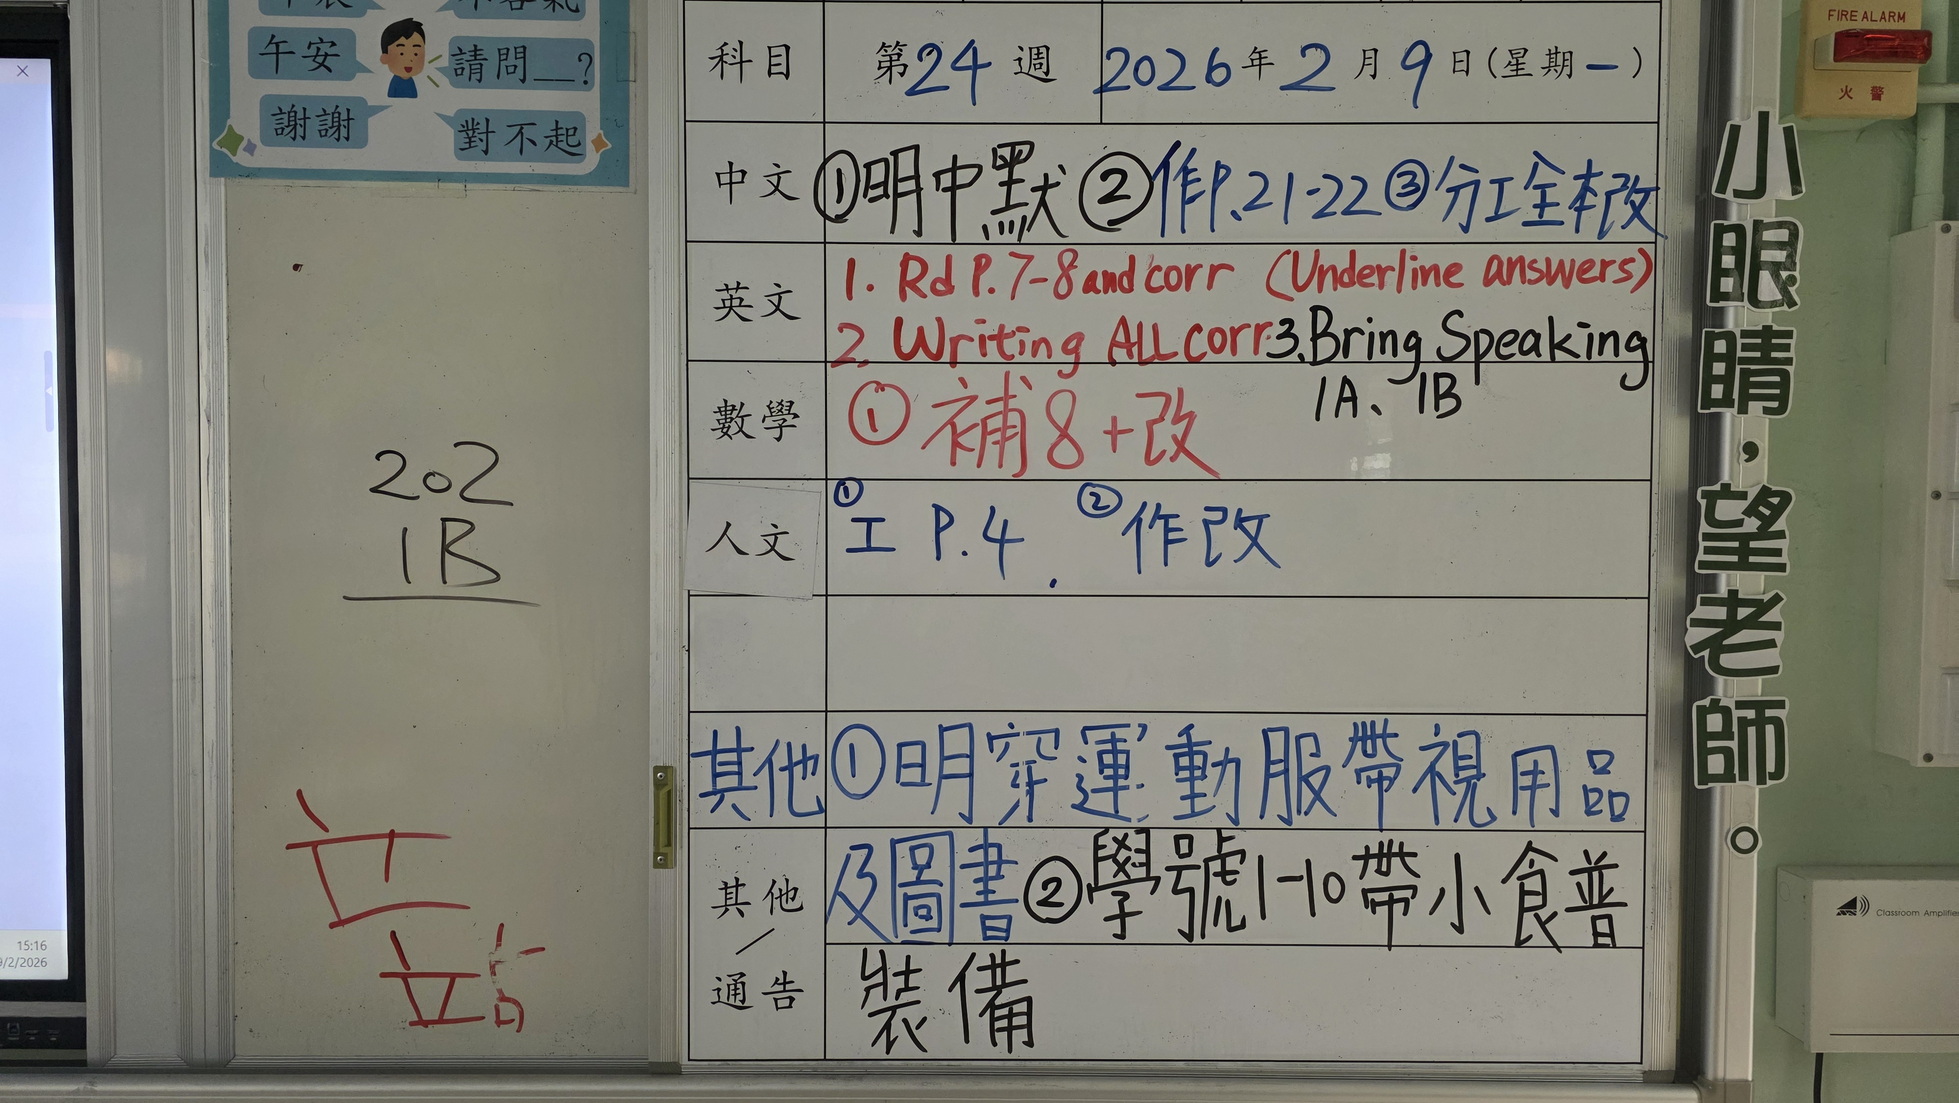 午安
請問__?
謝謝
對不起
科目 第24週 2026年2月9日(星期一)
中文 ①明中默 ②作P.21-22 ③分工全本改
英文 1. Rd P.7-8 and corr (Underline answers)
2. Writing ALL corr 3. Bring Speaking
1A、1B
數學 ① 補8+改
人文 ① 工 P.4 . ② 作改
其他 ①明穿運動服帶視用品
其他/通告 及圖書②學號1-10帶小食普
裝備
202
1B
站
15:16
9/2/2026
小眼睛,望老師。
FIRE ALARM
火警
Classroom Amplifier